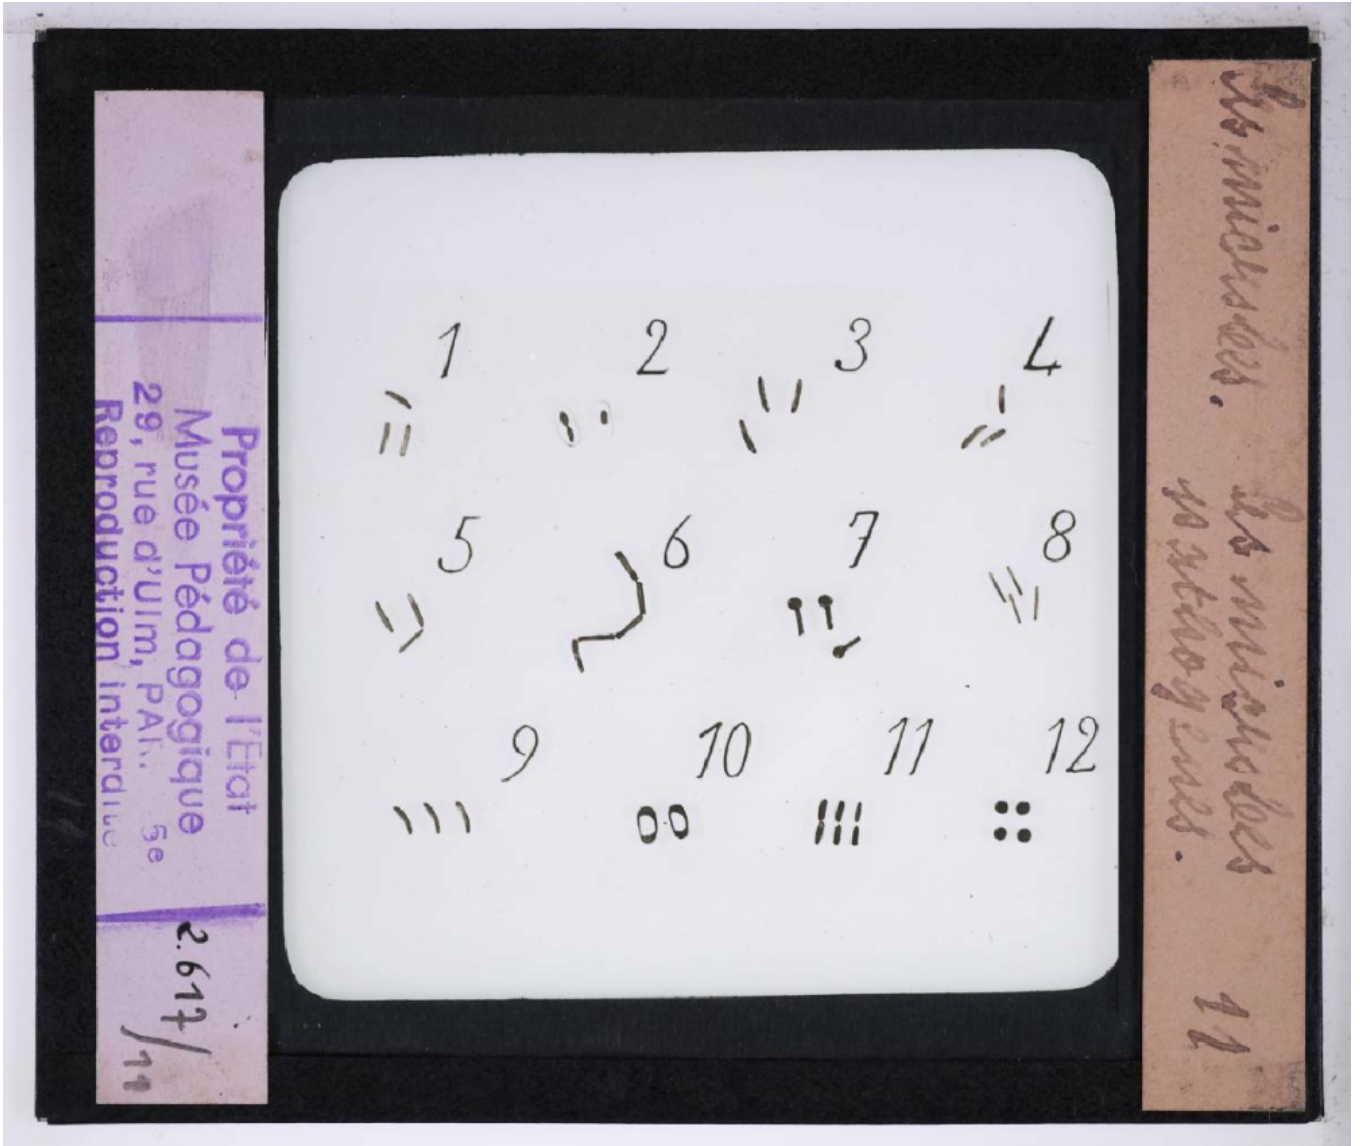 Propriété de l'Etat
Musée Pédagogique
29, rue d'Ulm, PAR. 5e
Reproduction interdite
2.617/11
1 2 3 4
5 6 7 8
9 10 11 12
Les microbes. Les microbes
pathogènes.
11